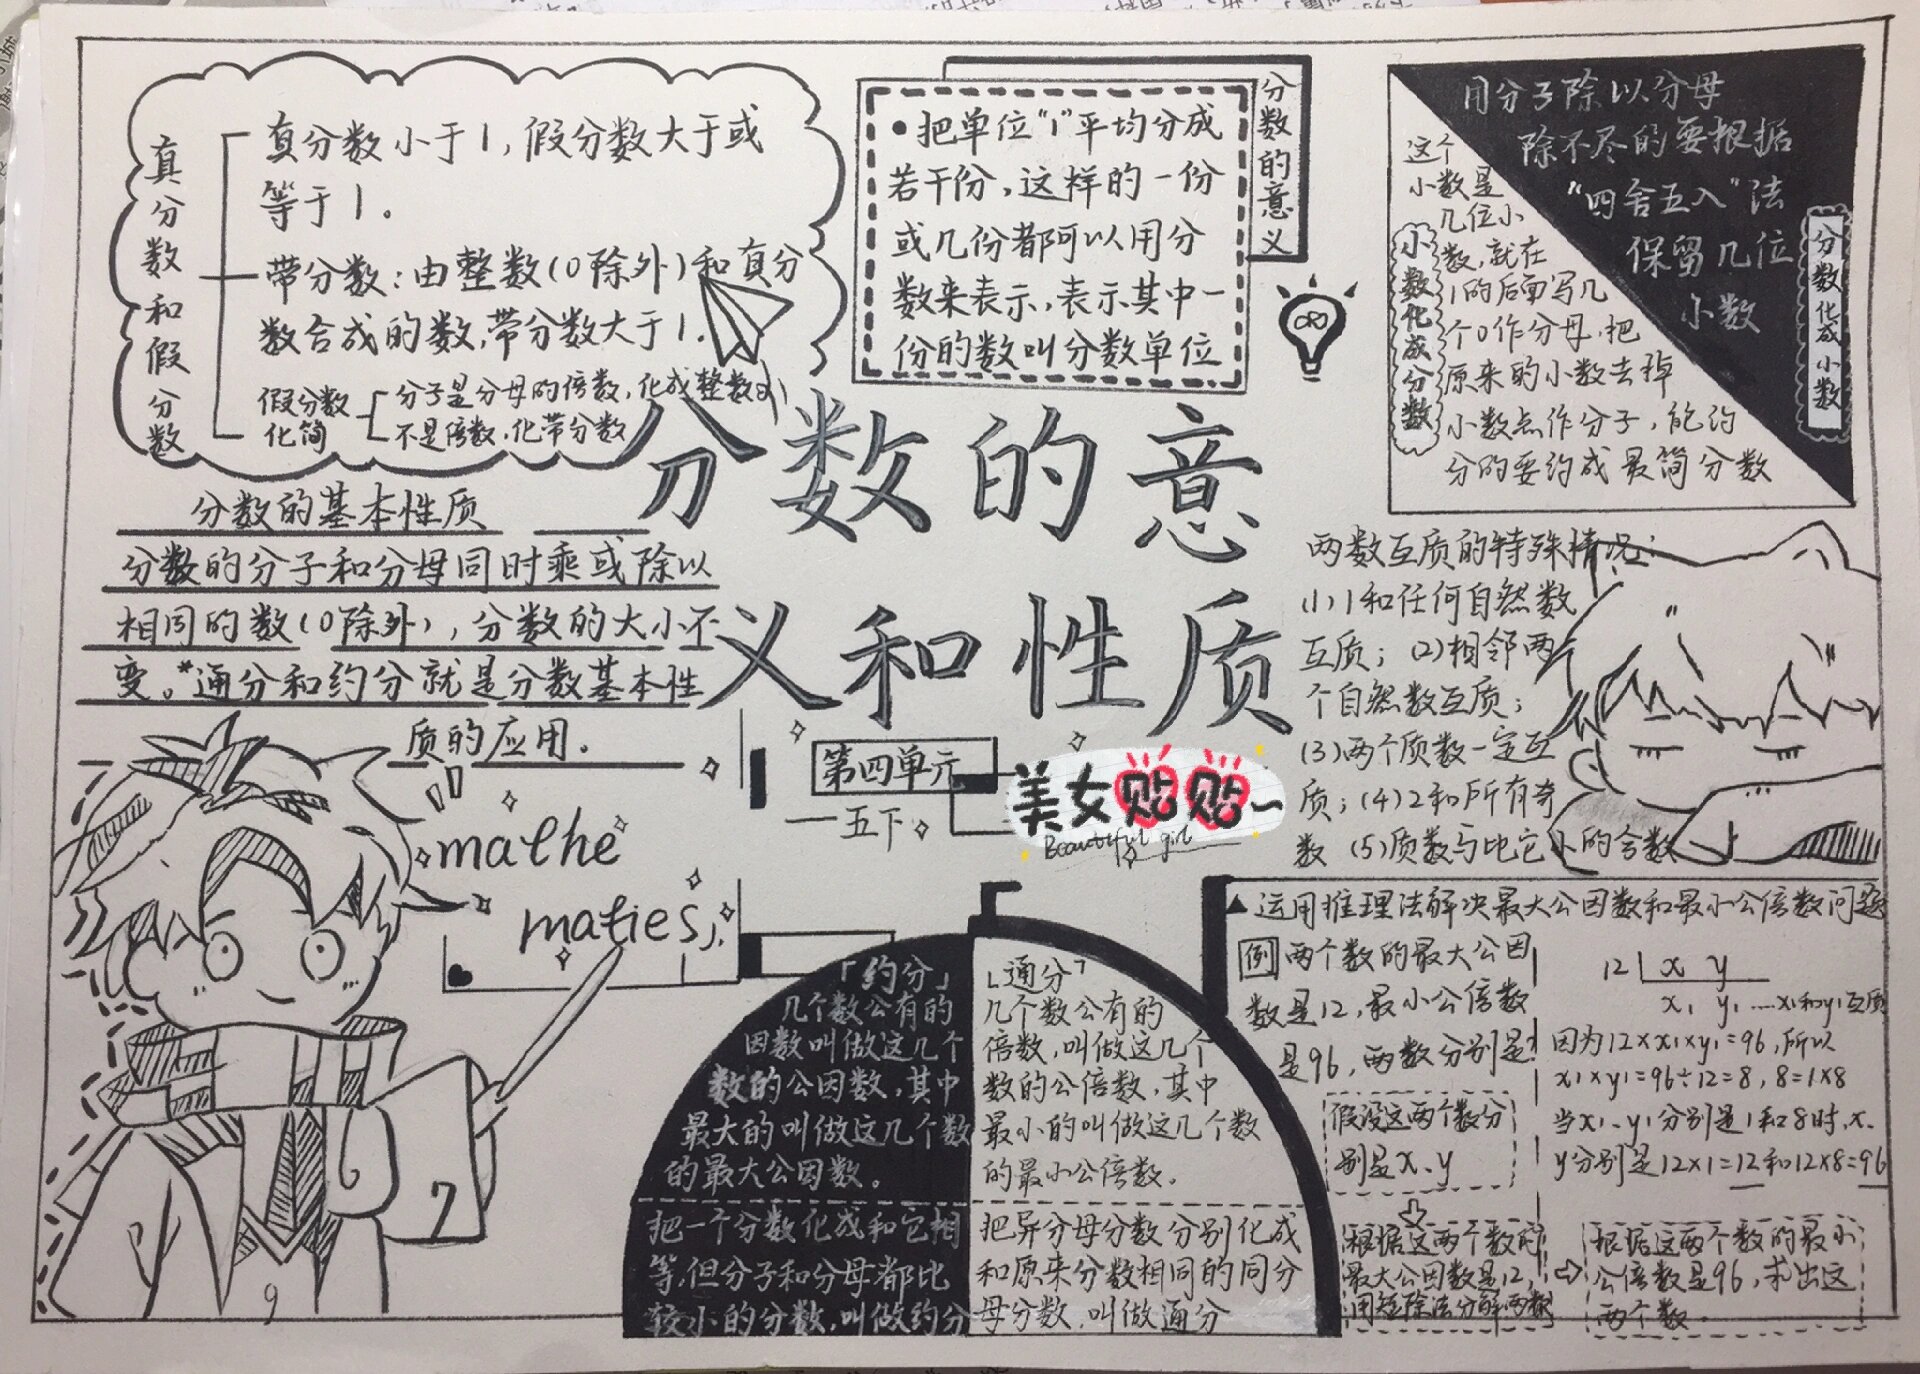 真分数和假分数
真分数小于1，假分数大于或
等于1。
带分数：由整数（0除外）和真分
数合成的数，带分数大于1.
假分数
化简
分子是分母的倍数，化成整数
不是倍数，化带分数
分数的意义
•把单位"1"平均分成
若干份，这样的一份
或几份都可以用分
数来表示，表示其中一
份的数叫分数单位
用分子除以分母
除不尽的要根据
"四舍五入"法
保留几位
小数
分数化成小数
小数化成分数
这个
小数是
几位小
数，就在
1的后面写几
个0作分母，把
原来的小数去掉
小数点作分子，能约
分的要约成最简分数
分数的意
义和性质
第四单元
一五下
美女贴贴~
Beautiful girl
分数的基本性质
分数的分子和分母同时乘或除以
相同的数（0除外），分数的大小不
变。*通分和约分就是分数基本性
质的应用.
mathe
maties
两数互质的特殊情况：
(1)1和任何自然数
互质；(2)相邻两
个自然数互质；
(3)两个质数一定互
质；(4)2和所有奇
数 (5)质数与比它小的合数
「约分」
几个数公有的
因数叫做这几个
数的公因数，其中
最大的叫做这几个数
的最大公因数。
把一个分数化成和它相
等，但分子和分母都比
较小的分数，叫做约分
「通分」
几个数公有的
倍数，叫做这几个
数的公倍数，其中
最小的叫做这几个数
的最小公倍数.
把异分母分数分别化成
和原来分数相同的同分
母分数，叫做通分
▲运用推理法解决最大公因数和最小公倍数问题
例 两个数的最大公因
数是12，最小公倍数
是96，两数分别是
假设这两个数分
别是x、y
根据这两个数的
最大公因数是12，
用短除法分解两数
根据这两个数的最小
公倍数是96，求出这
两个数.
12 x y
x₁ y₁ ....x₁和y₁互质
因为12×x₁×y₁=96，所以
x₁×y₁=96÷12=8，8=1×8
当x₁、y₁分别是1和8时，x、
y分别是12×1=12和12×8=96
7
9